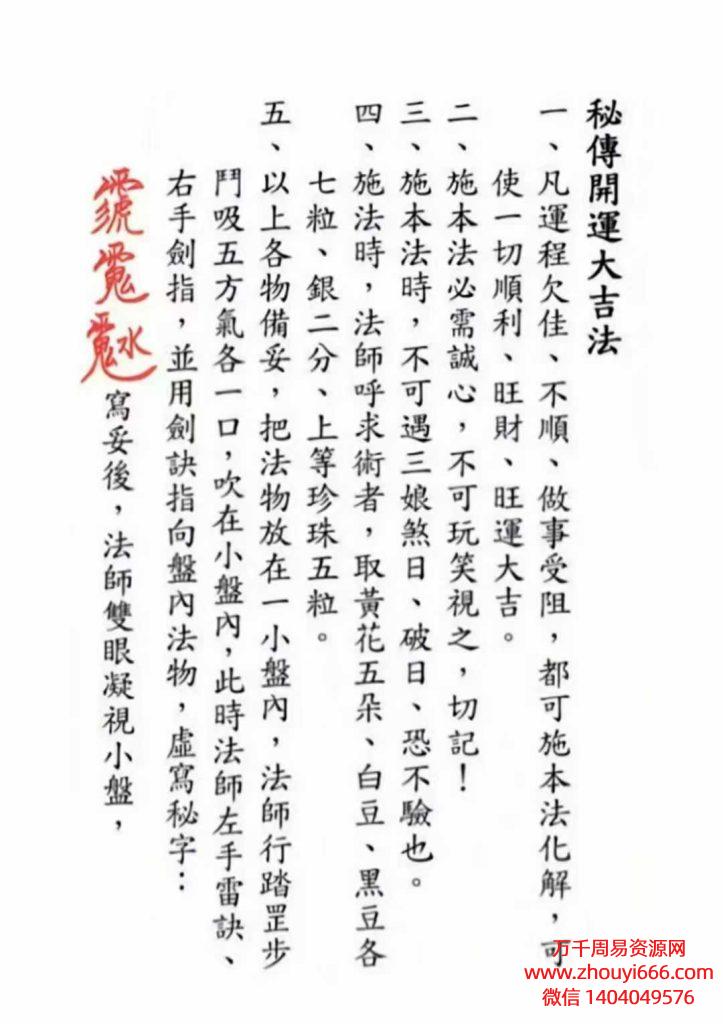 秘傳開運大吉法
一、凡運程欠佳、不順、做事受阻，都可施本法化解，可
使一切順利、旺財、旺運大吉。
二、施本法必需誠心，不可玩笑視之，切記！
三、施本法時，不可遇三娘煞日、破日、恐不驗也。
四、施法時，法師呼求術者，取黃花五朵、白豆、黑豆各
七粒、銀二分、上等珍珠五粒。
五、以上各物備妥，把法物放在一小盤內，法師行踏罡步
鬥吸五方氣各一口，吹在小盤內，此時法師左手雷訣、
右手劍指，並用劍訣指向盤內法物，虛寫秘字：
寫妥後，法師雙眼凝視小盤，
万千周易资源网
www.zhouyi666.com
微信 1404049576